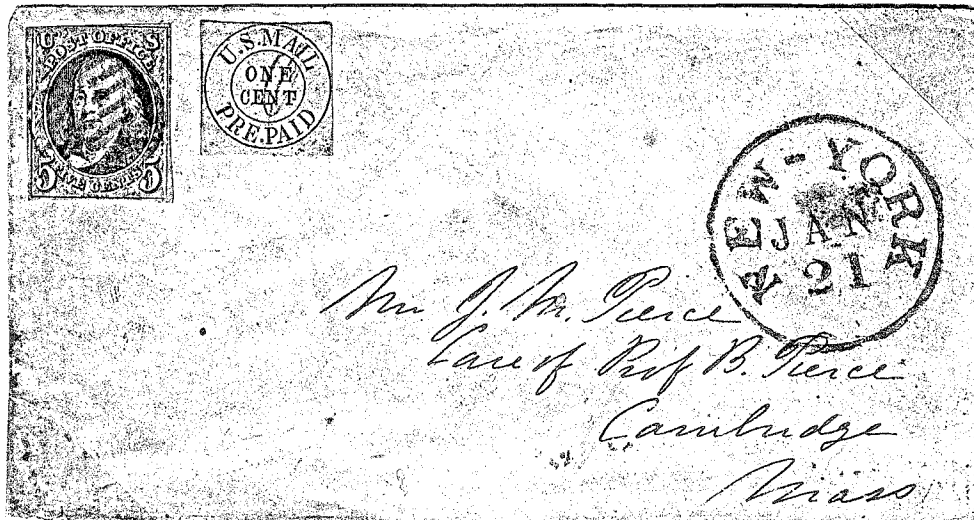 U S
POST OFFICE
5 FIVE CENTS 5
U.S.MAIL
ONE
CENT
PRE.PAID
NEW-YORK
JAN
21
Mr J. M. Pierce
Care of Prof B. Pierce
Cambridge
Mass